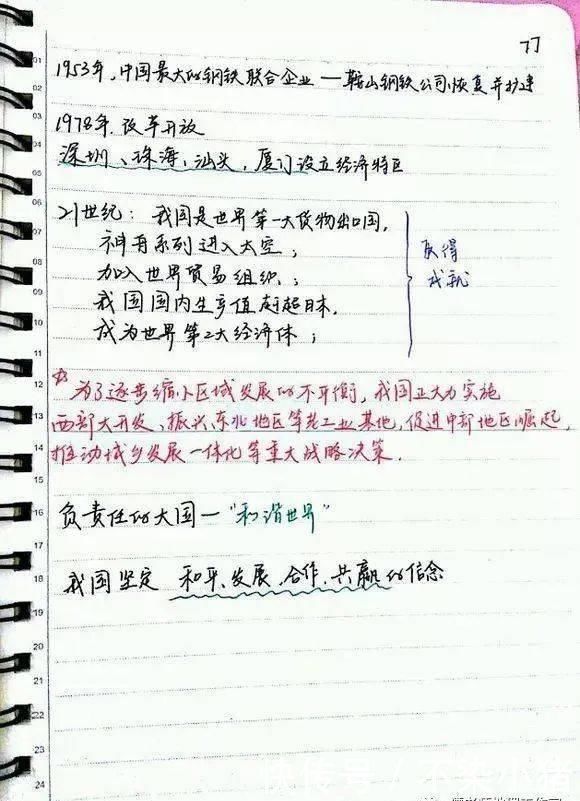 77
1953年,中国最大的钢铁联合企业—鞍山钢铁公司恢复并扩建
1978年.改革开放
深圳、珠海、汕头,厦门设立经济特区
21世纪:我国是世界第一大货物出口国,
神舟系列进入太空;
加入世界贸易组织;
我国国内生产值赶超日本,
成为世界第2大经济体;
获得
成就
为了逐步缩小区域发展的不平衡,我国正大力实施
西部大开发、振兴东北地区等老工业基地,促进中部地区崛起,
推动城乡发展一体化等重大战略决策.
负责任的大国—"和谐世界"
我国坚定 和平、发展、合作、共赢的信念
01
02
03
04
05
06
07
08
09
10
11
12
13
14
15
16
17
18
19
20
21
22
23
24